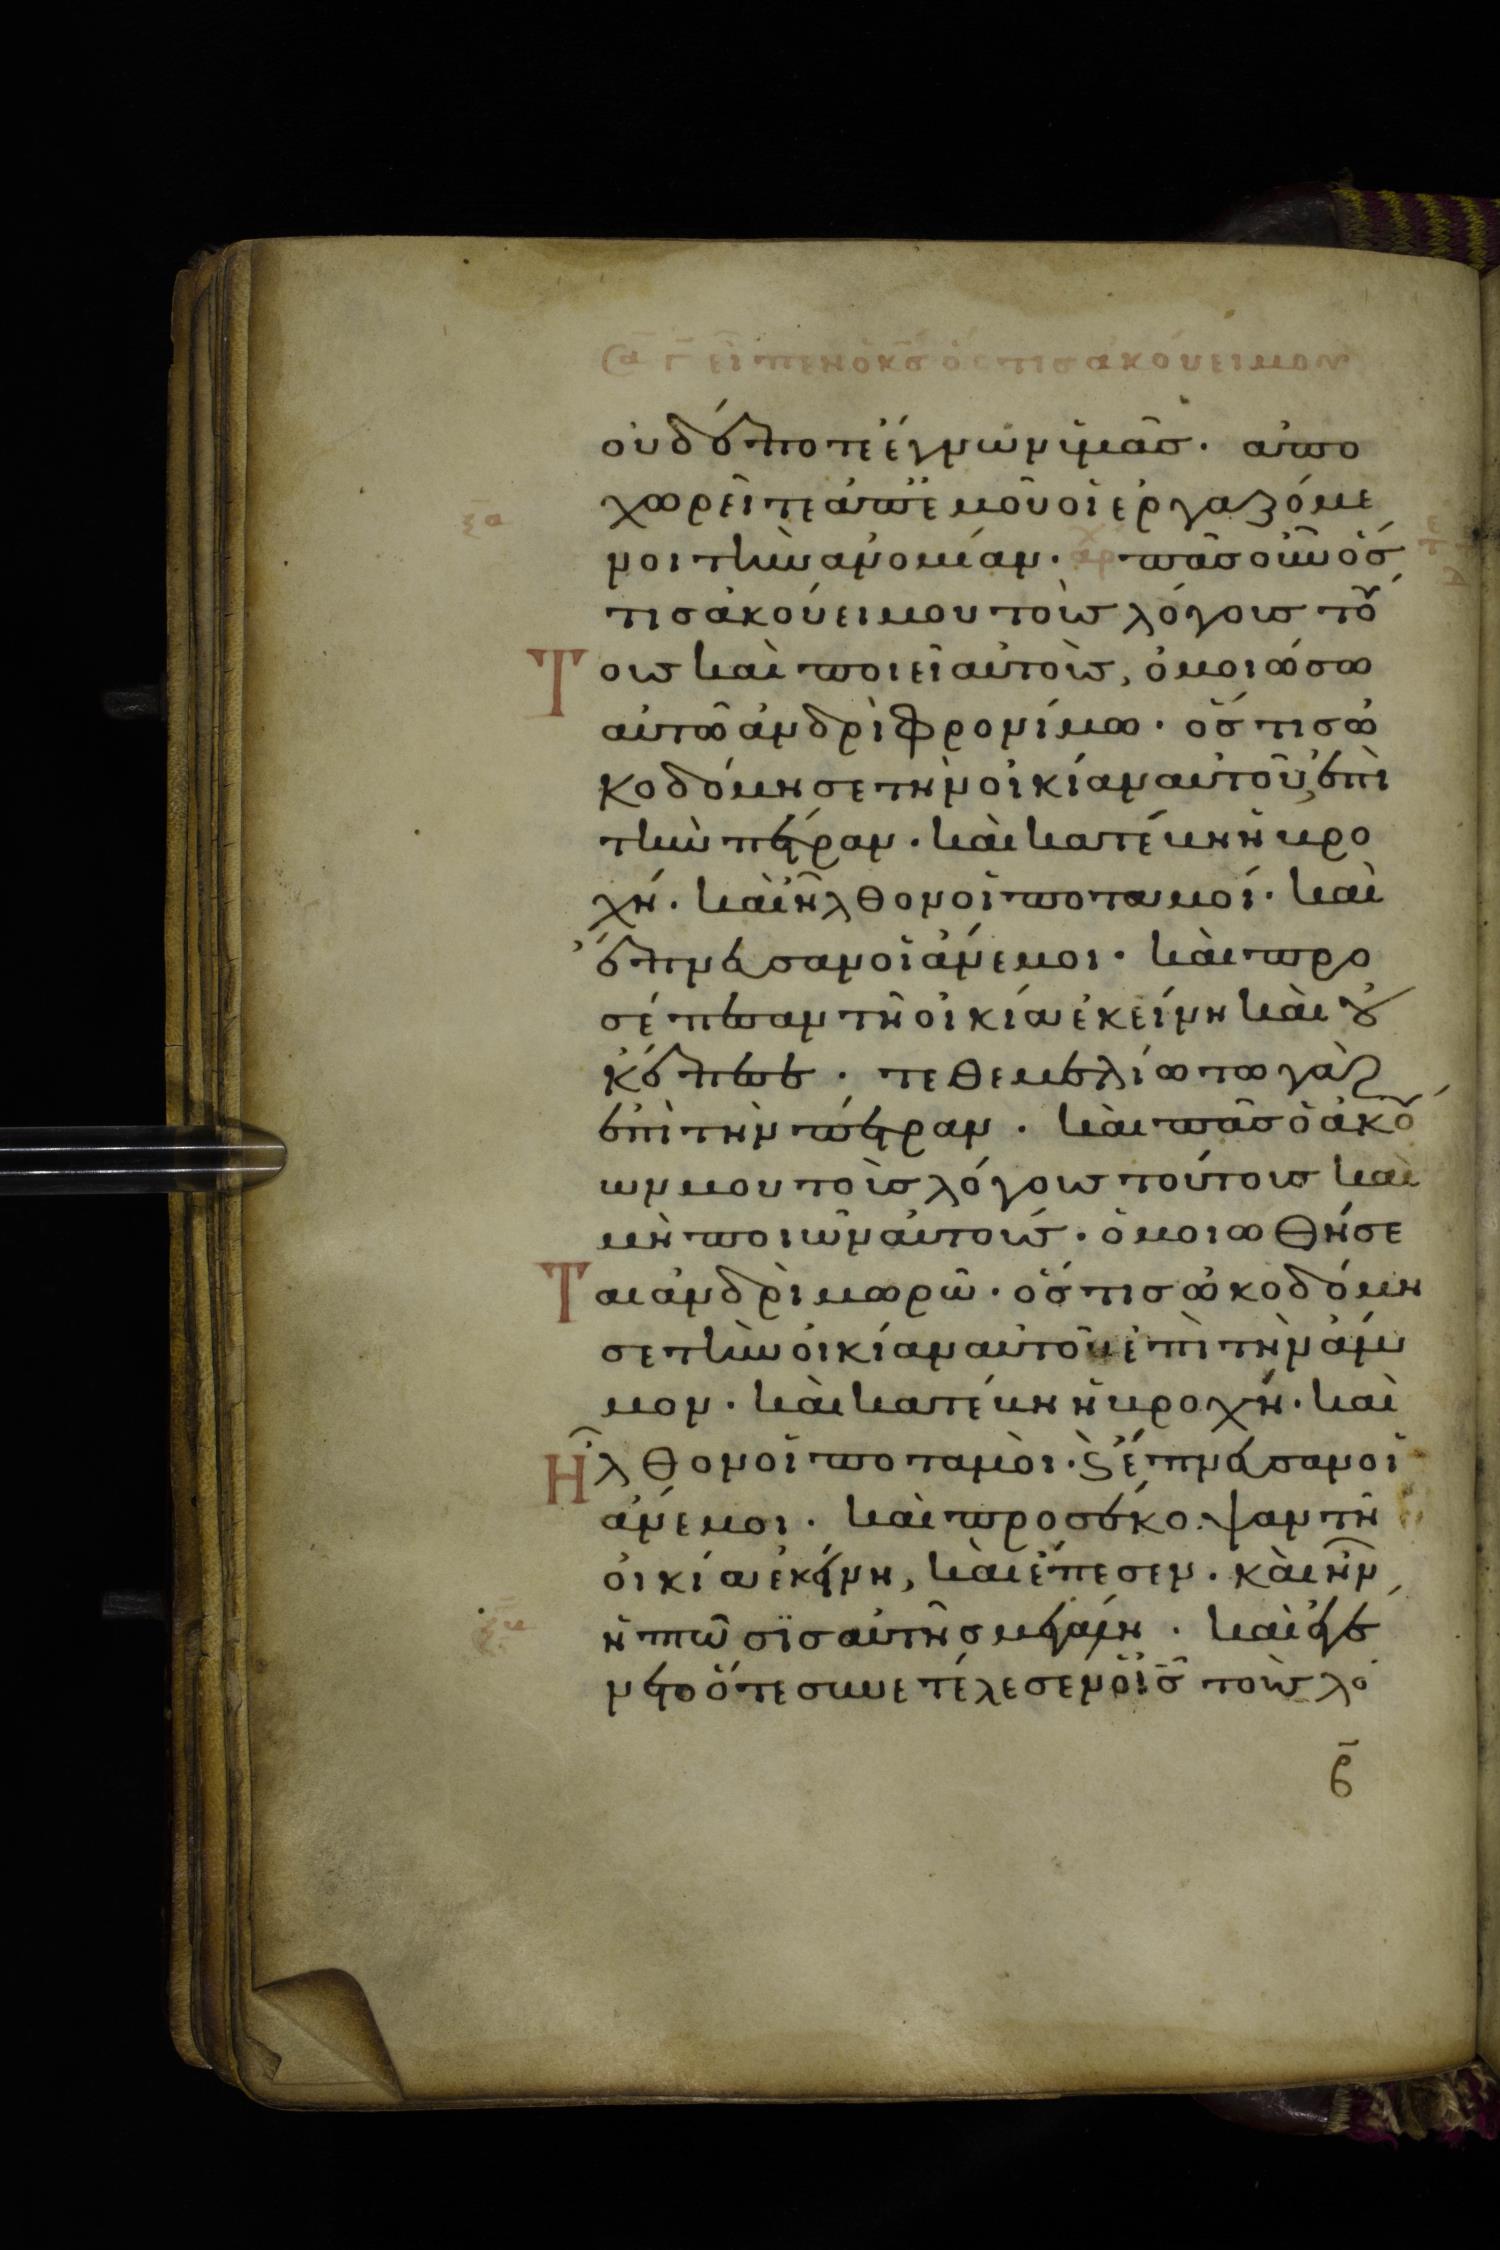 εἶπεν ὁ κς ὅστις ἀκούει μου
οὐδέποτε ἔγνων ὑμᾶς· ἀπο
χωρεῖτε ἀπ' ἐμοῦ οἱ ἐργαζόμε
ξα
νοι τὴν ἀνομίαν· αρχ πᾶς οὖν ὅσ
τις ἀκούει μου τοὺς λόγους τού
Τους καὶ ποιεῖ αὐτοὺς, ὁμοιώσω
αὐτῶ ἀνδρὶ φρονίμω· ὅστις ὠ
κοδόμησε τὴν οἰκίαν αὐτοῦ, ἐπὶ
τὴν πέτραν· καὶ κατέβη ἡ βρο
χή· καὶ ἦλθον οἱ ποταμοί· καὶ
ἔπνευσαν οἱ ἄνεμοι· καὶ προ
σέπεσαν τῆ οἰκία ἐκείνη καὶ οὐ
κ ἔπεσε· τεθεμελίωτω γὰρ
ἐπὶ τὴν πέτραν· καὶ πᾶς ὁ ἀκού
ων μου τοὺς λόγους τούτους καὶ
μὴ ποιῶν αὐτούς· ὁμοιωθήσε
Ται ἀνδρὶ μωρῶ· ὅστις ὠκοδόμη
σε τὴν οἰκίαν αὐτοῦ ἐπὶ τὴν ἄμ
μον· καὶ κατέβη ἡ βροχή· καὶ
Ἦλθον οἱ ποταμοὶ· ϗ ἔπνευσαν οἱ
ἄνεμοι· καὶ προσέκοψαν τῆ
οἰκία ἐκείνη, καὶ ἔπεσεν· καὶ ἦν
ἡ πτῶσϊς αὐτῆς μεγάλη· καὶ ἐγέ
νετο ὅτε συνετέλεσεν ὁ ἰς τοὺς λό
β